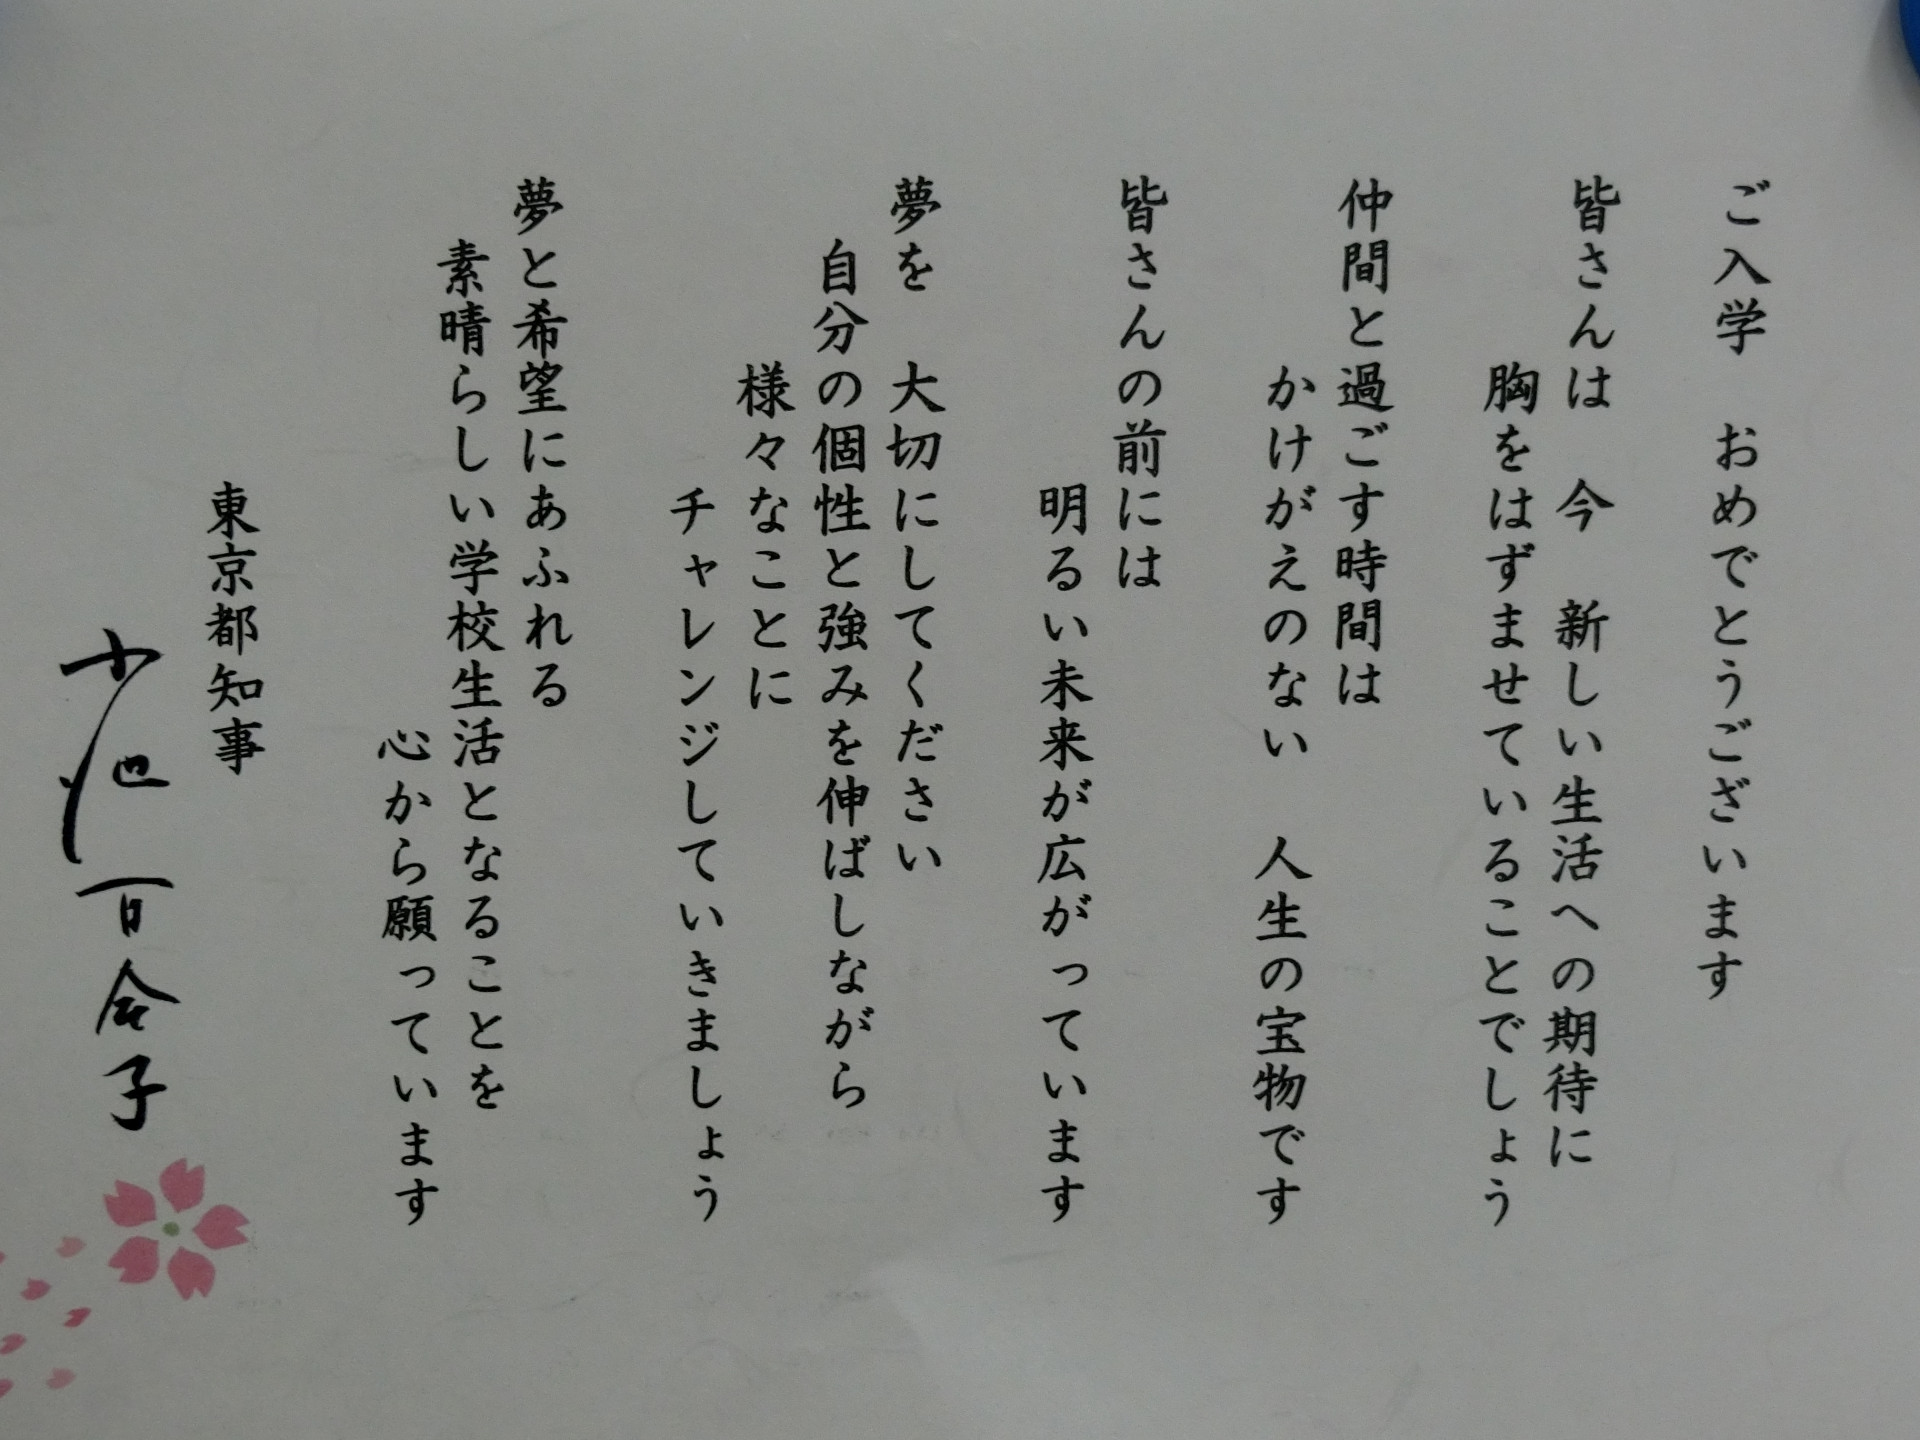 ご入学　おめでとうございます
皆さんは　今　新しい生活への期待に
胸をはずませていることでしょう
仲間と過ごす時間は
かけがえのない　人生の宝物です
皆さんの前には
明るい未来が広がっています
夢を　大切にしてください
自分の個性と強みを伸ばしながら
様々なことに
チャレンジしていきましょう
夢と希望にあふれる
素晴らしい学校生活となることを
心から願っています
東京都知事
小池百合子